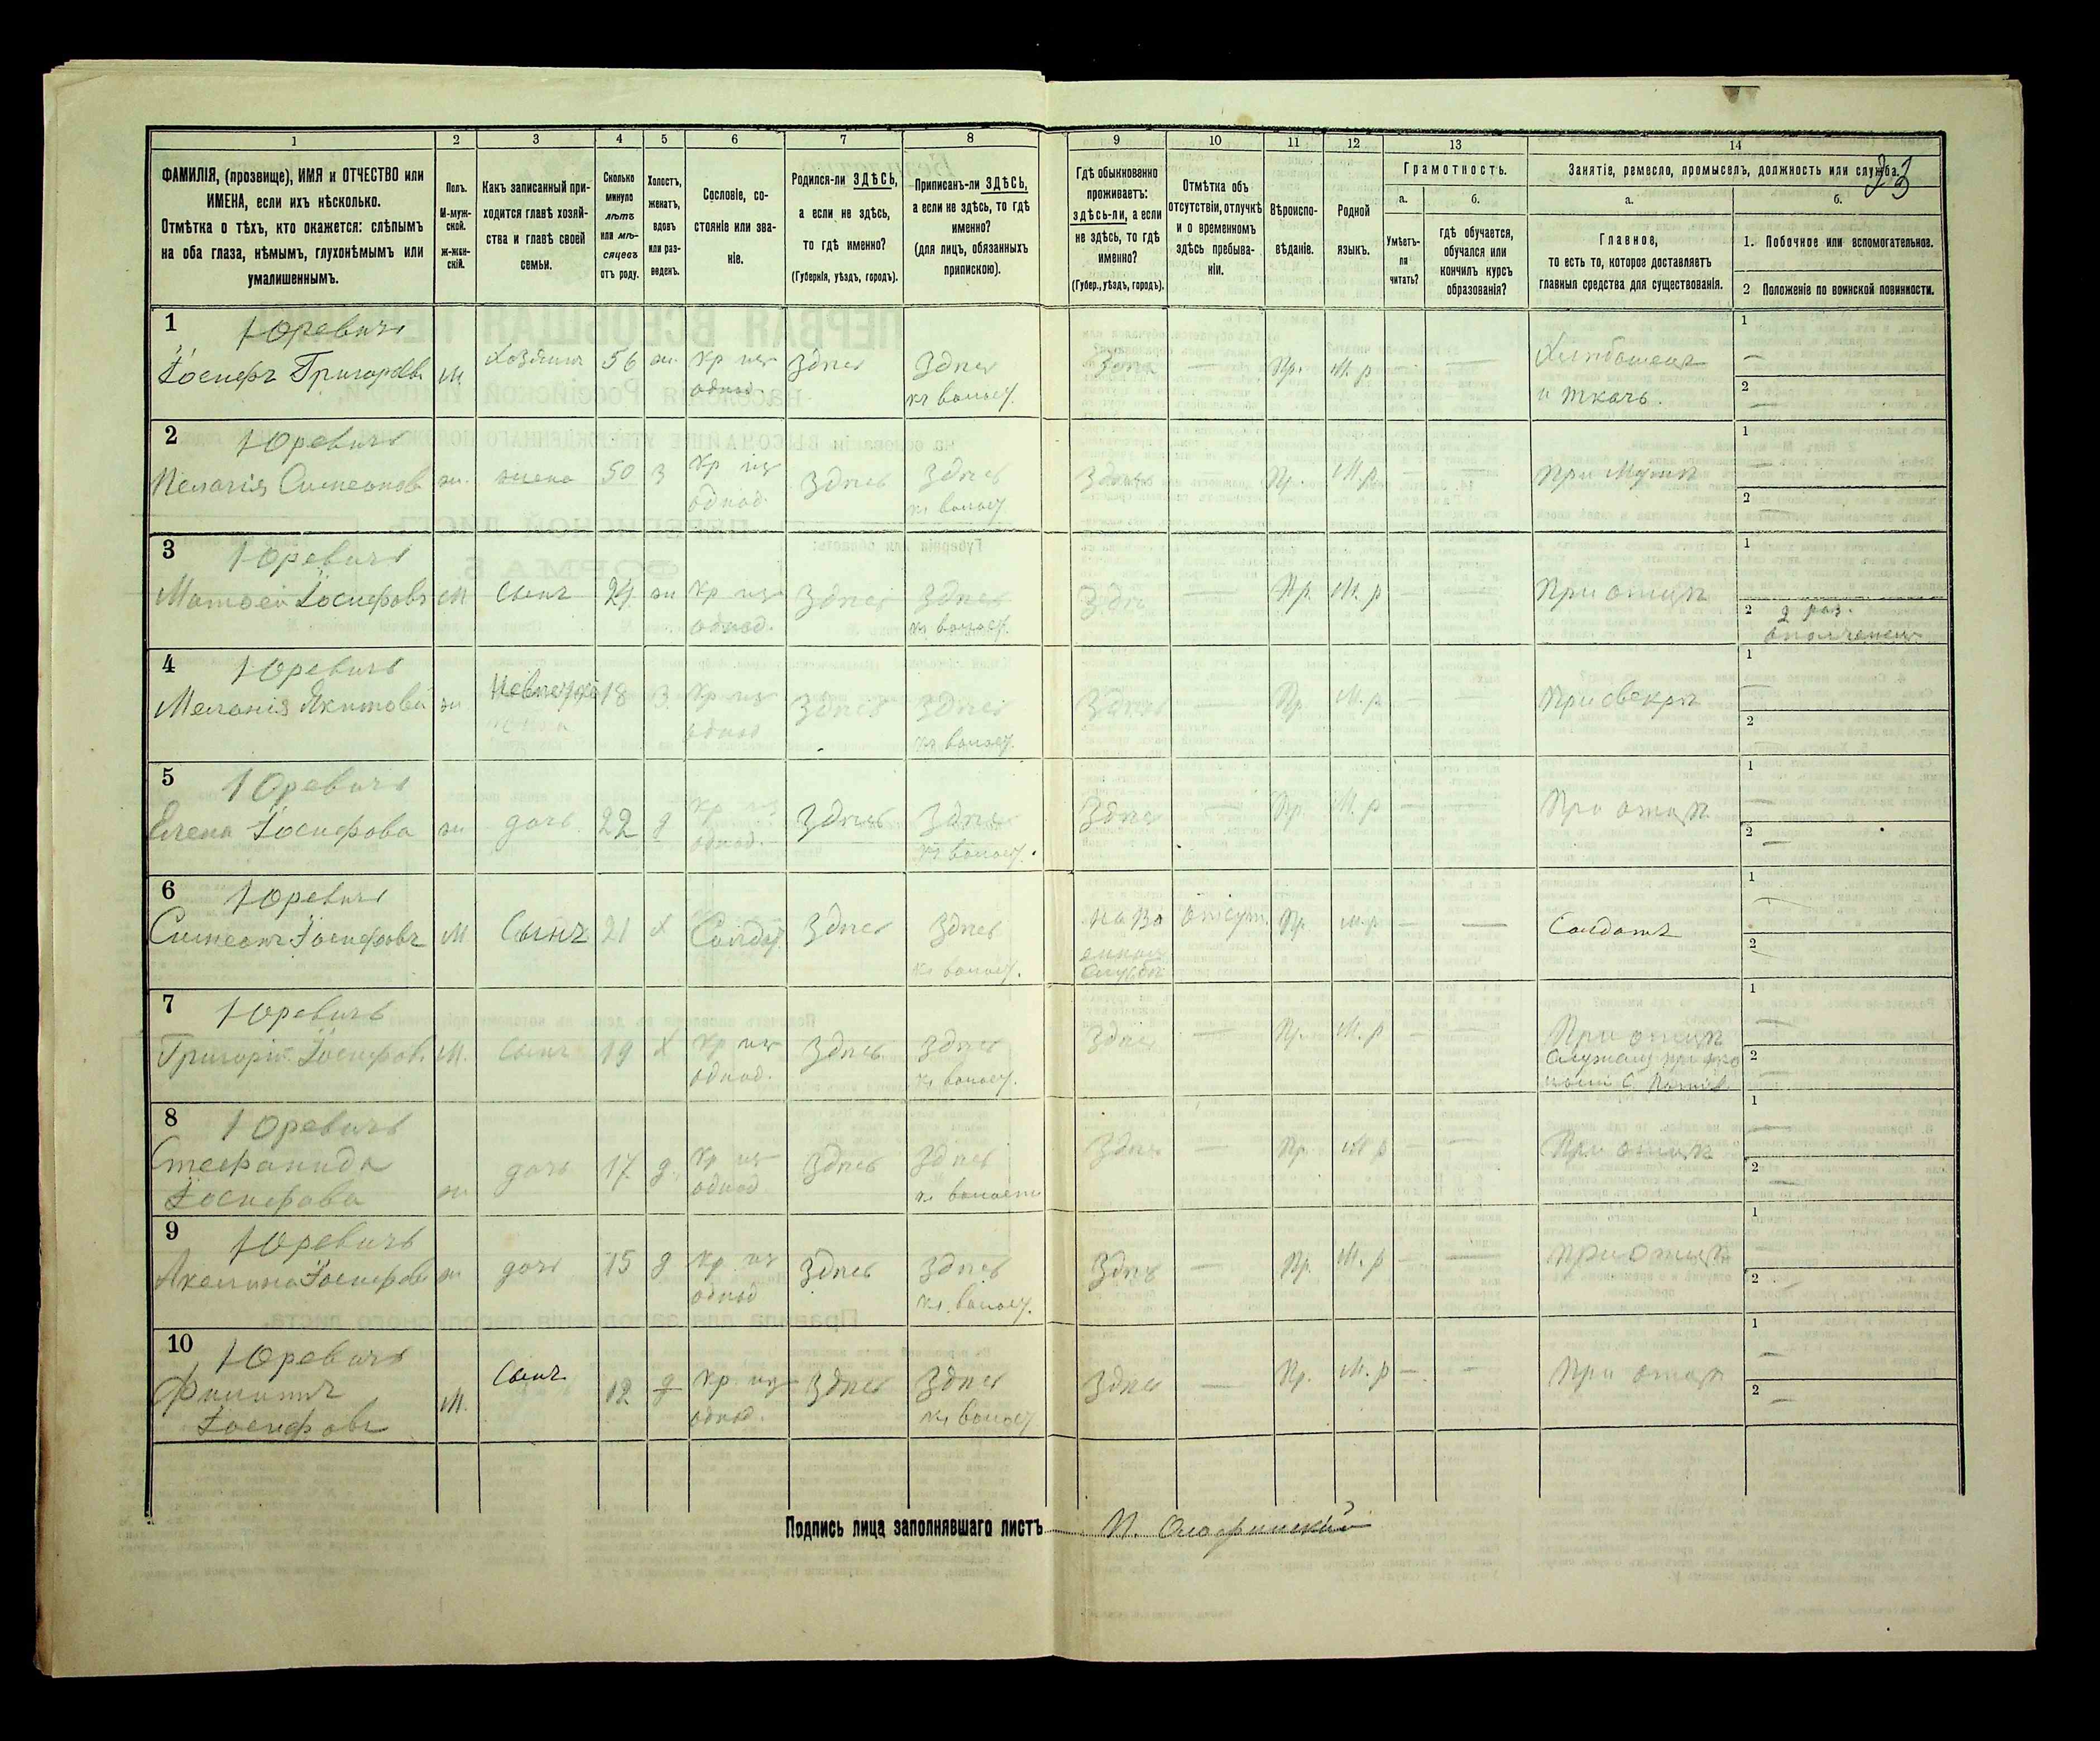 23
1
2
3
4
5
6
7
8
9
10
11
12
13
14
ФАМИЛІЯ, (прозвище), ИМЯ и ОТЧЕСТВО или
ИМЕНА, если ихъ нѣсколько.
Отмѣтка о тѣхъ, кто окажется: слѣпымъ
на оба глаза, нѣмымъ, глухонѣмымъ или
умалишеннымъ.
Полъ.
М-муж-
ской.
ж-жен-
скій.
Какъ записанный при-
ходится главѣ хозяй-
ства и главѣ своей
семьи.
Сколько
минуло
лѣтъ
или мѣ-
сяцевъ
отъ роду.
Холостъ,
женатъ,
вдовъ
или раз-
веденъ.
Сословіе, со-
стояніе или зва-
ніе.
Родился-ли ЗДѢСЬ,
а если не здѣсь,
то гдѣ именно?
(Губернія, уѣздъ, городъ).
Приписанъ-ли ЗДѢСЬ,
а если не здѣсь, то гдѣ
именно?
(для лицъ, обязанныхъ
припискою).
Гдѣ обыкновенно
проживаетъ:
здѣсь-ли, а если
не здѣсь, то гдѣ
именно?
(Губер., уѣздъ, городъ).
Отмѣтка объ
отсутствіи, отлучкѣ
и о временномъ
здѣсь пребыва-
ніи.
Вѣроиспо-
вѣданіе.
Родной
языкъ.
Грамотность.
а.
Умѣетъ-
ли
читать?
б.
гдѣ обучается,
обучался или
кончилъ курсъ
образованія?
Занятіе, ремесло, промыселъ, должность или служба.
а.
Главное,
то есть то, которое доставляетъ
главныя средства для существованія.
б.
1. Побочное или вспомогательное.
2 Положеніе по воинской повинности.
1
Юревичъ
Іосифъ Григорьевъ м Хозяинъ 56 ж. кр. изъ Здѣсь Здѣсь Здѣсь — Пр. М. р — — Хлѣбопашецъ
однод. къ волост. и ткачъ.
1 —
2 —
2
Юревичъ
Пелагія Симеонова ж. жена 50 З кр изъ Здѣсь Здѣсь Здѣсь Пр. М.р. — — При мужѣ
однод. къ волост.
1 —
2 —
3
Юревичъ
Матвей Іосифовъ м сынъ 24 ж кр изъ Здѣсь Здѣсь Здѣсь — Пр. М. р — — При отцѣ
однод. къ волост.
1
2 2 раз.
ополченецъ
4
Юревичъ
Меланія Якимова ж Невѣстка 18 З. кр изъ Здѣсь Здѣсь Здѣсь — Пр. М. р. — — При свекрѣ
однод къ волост.
1 —
2 —
5
Юревичъ
Елена Іосифова ж дочь 22 д кр. изъ Здѣсь Здѣсь Здѣсь — Пр. М. р — — При отцѣ
однод. къ волост.
1 —
2 —
6
Юревичъ
Симеонъ Іосифовъ м Сынъ 21 х Солдат. Здѣсь Здѣсь На во отсут. Пр. М. р — — Солдатъ
къ волост. енной
службѣ
1 —
2 —
7
Юревичъ
Григорій Іосифовъ м. Сынъ 19 х кр изъ Здѣсь Здѣсь Здѣсь — Пр. М. р — — При отцѣ
однод. къ волост.
1 —
2 —
8
Юревичъ
Стефанида
Іосифова ж дочь 17 д. кр изъ Здѣсь Здѣсь Здѣсь — Пр. М р — — При отцѣ
однод къ волости
1 —
2 —
9
Юревичъ
Акелина Іосифова ж дочь 15 д кр. изъ Здѣсь Здѣсь Здѣсь — Пр. М. р — — При отцѣ
однод къ волост.
1 —
2 —
10
Юревичъ
Филиппъ
Іосифовъ м. Сынъ 12 кр. изъ Здѣсь Здѣсь Здѣсь — Пр. М. р — — При отцѣ
однод. къ волост.
1 —
2 —
Подпись лица заполнявшаго листъ